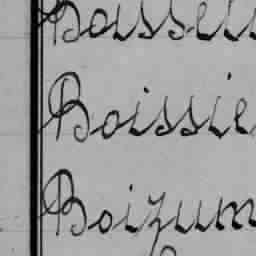 Boissel
Boissie
Boizum